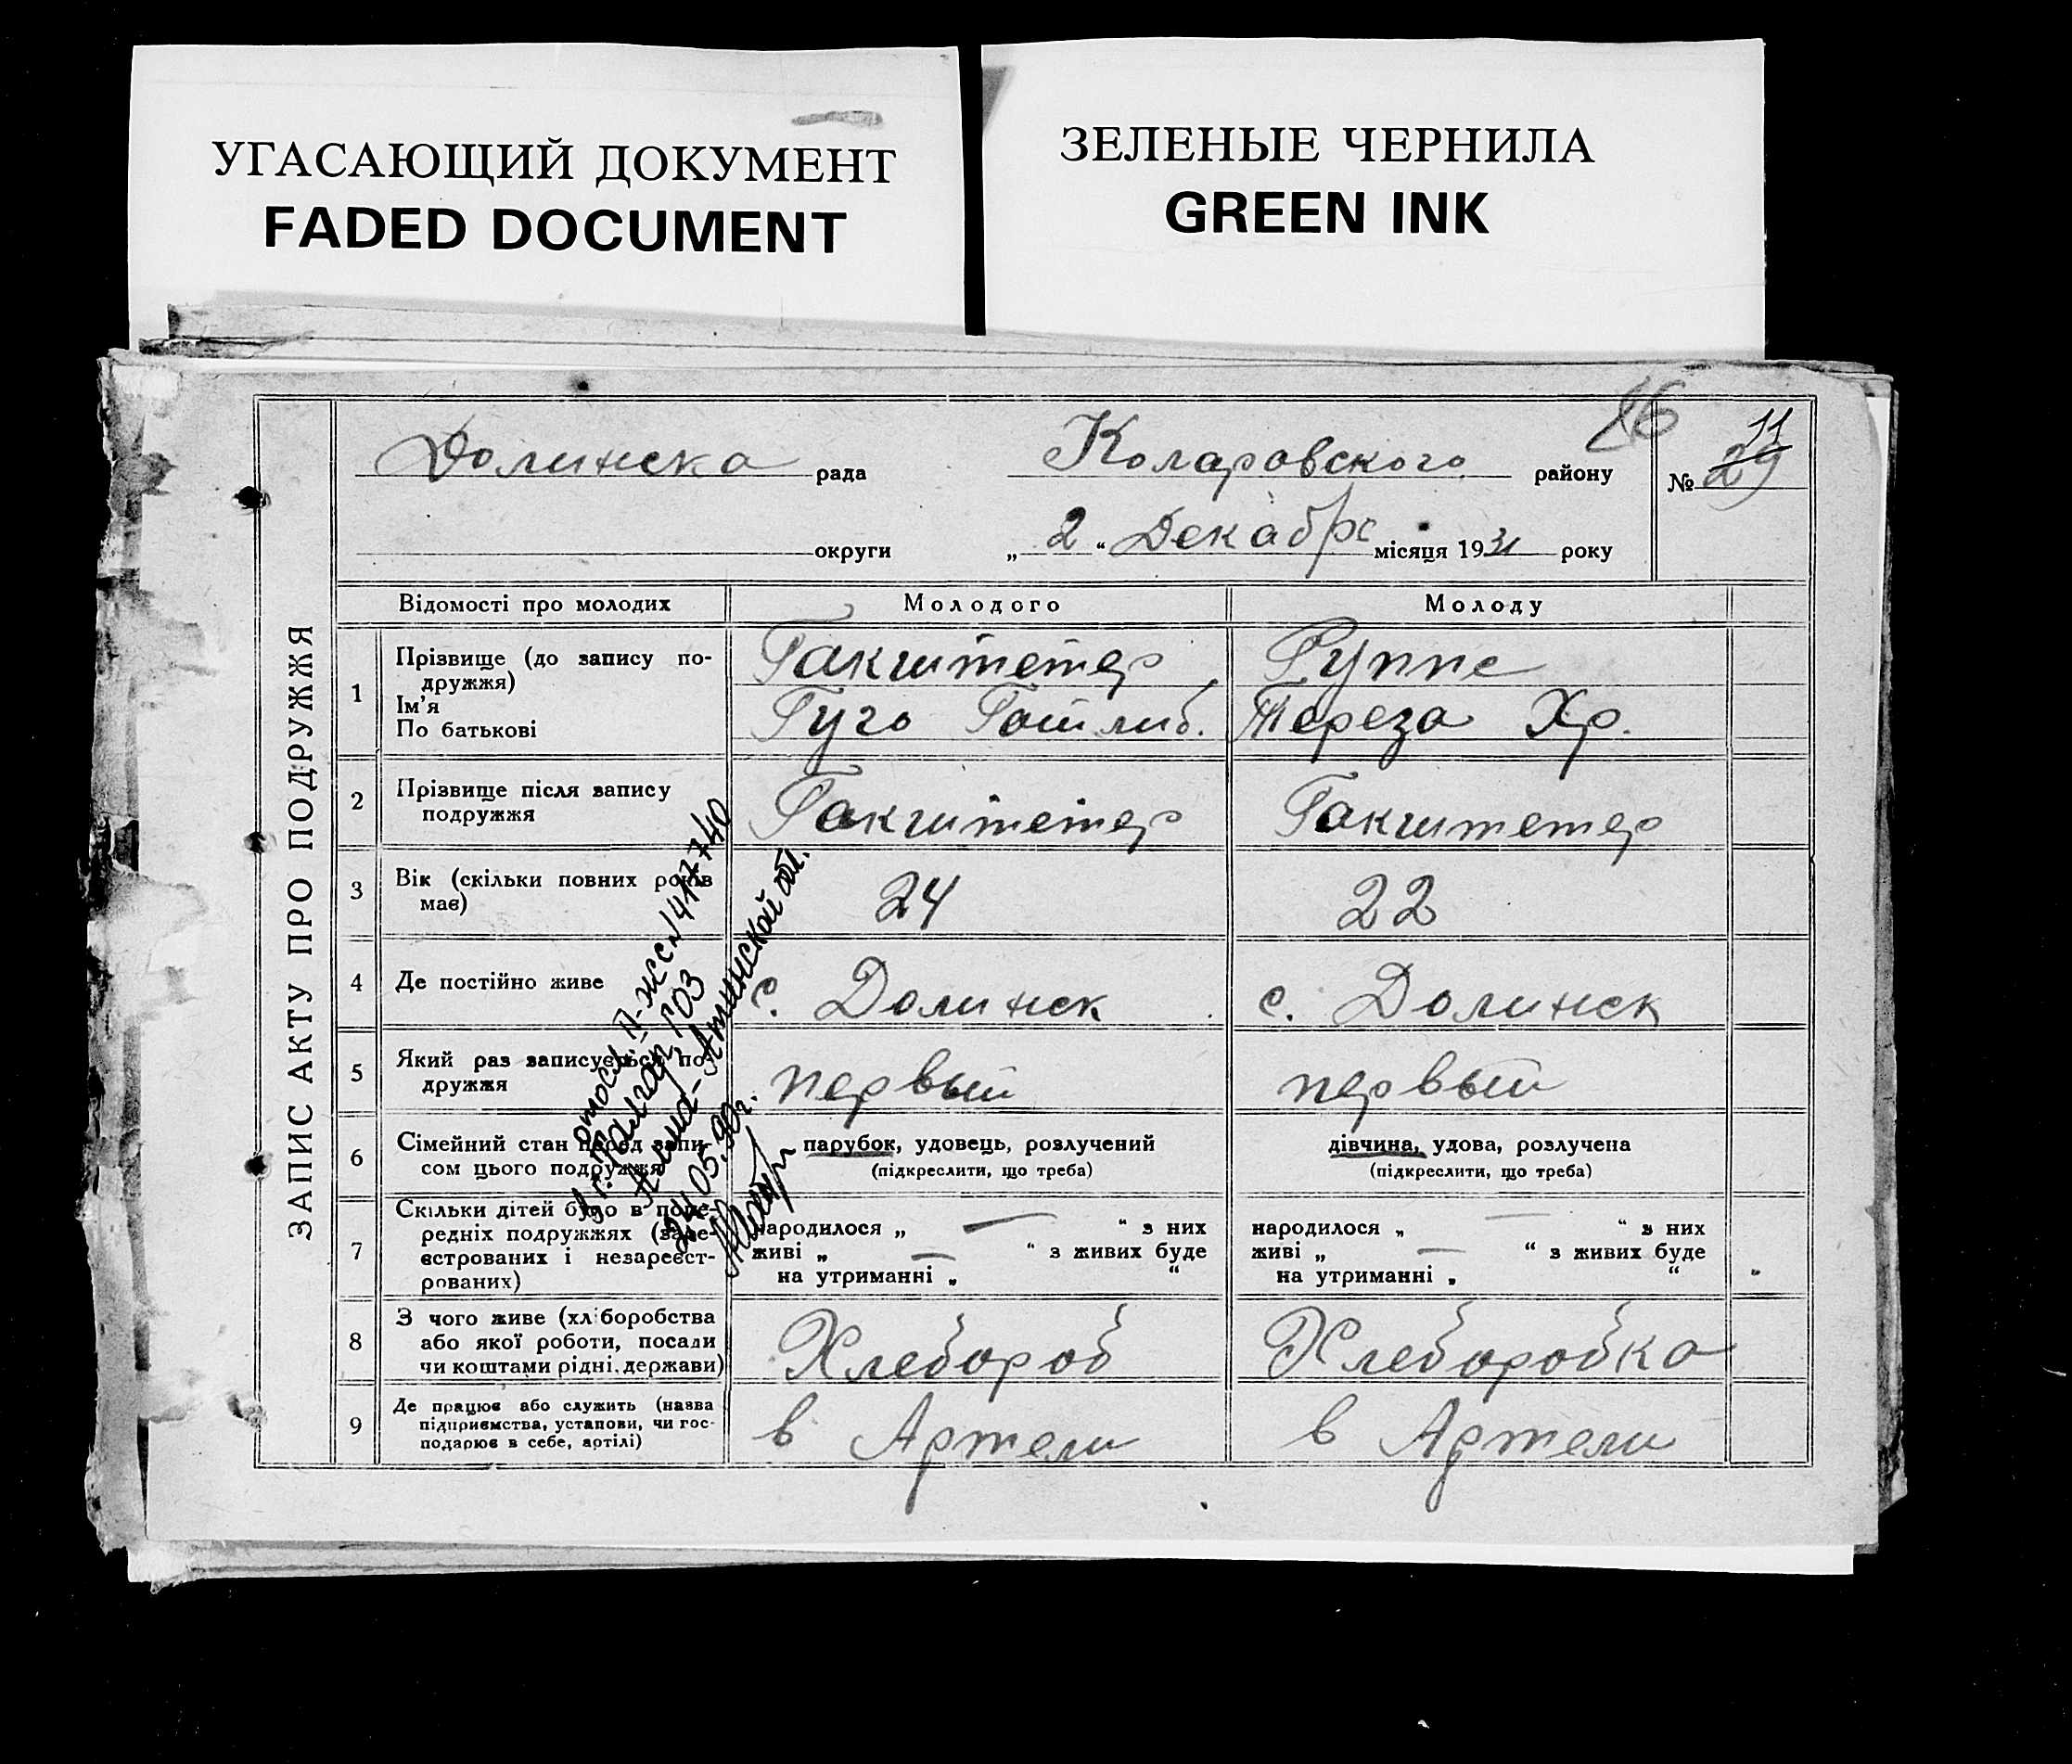 УГАСАЮЩИЙ ДОКУМЕНТ
FADED DOCUMENT
ЗЕЛЕНЫЕ ЧЕРНИЛА
GREEN INK
ЗАПИС АКТУ ПРО ПОДРУЖЖЯ
Долинска рада
Коларовского району
26
№ 29 11
округи
„ 2 “ Декабрс місяця 1931 року
Відомості про молодих
Молодого
Молоду
1
Прізвище (до запису по-
дружжя)
Ім'я
По батькові
Гакштетер
Гуго Готлиб.
Руппе
Тереза Хр.
2
Прізвище після запису
подружжя
Гакштетер
Гакштетер
3
Вік (скільки повних років
має)
24
22
4
Де постійно живе
с. Долинск
с. Долинск
5
Який раз записується по-
дружжя
первый
первый
6
Сімейний стан перед запи-
сом цього подружжя
парубок, удовець, розлучений
(підкреслити, що треба)
дівчина, удова, розлучена
(підкреслити, що треба)
7
Скільки дітей було в попе-
редніх подружжях (заре-
єстрованих і незареєст-
рованих)
народилося „ — “ з них
живі „ — “ з живих буде
на утриманні „ “
народилося „ — “ з них
живі „ — “ з живих буде
на утриманні „ “
8
З чого живе (хліборобства
або якої роботи, посади
чи коштами рідні, держави)
Хлебороб
Хлеборобка
9
Де працює або служить (назва
підприємства, установи, чи гос-
подарює в себе, артілі)
в Артели
в Артели
II-ЖС № 417740
в г. Талгар, ГОЗ
Алма-Атинской обл.
24.05.90г.